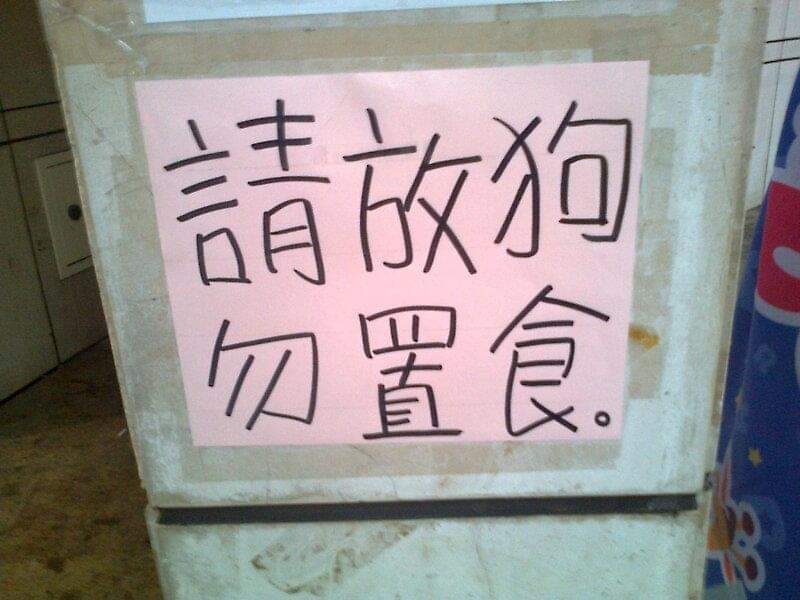 請放狗
勿置食。